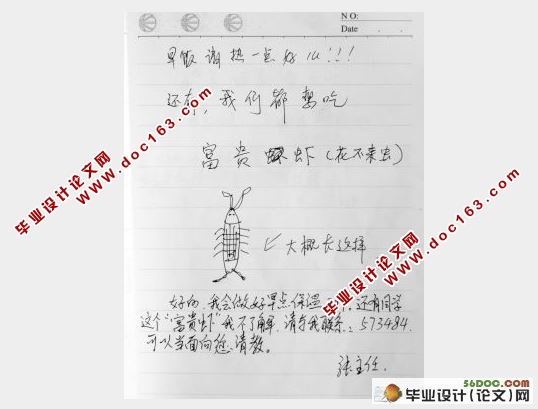 NO:
Date
早饭 谢 热 一点 好 !!!
还有,我们都想吃
富贵虾(花不来虫)
大概长这样
好的,我会做好早点保温 还有同学
这个“富贵虾”我不了解,请与我联系:573484.
可以当面向您请教。
张主任.
毕业设计论文网
www.doc163.com
毕业设计论文网
www.doc163.com
56DOC.COM
毕业设计(论文)网